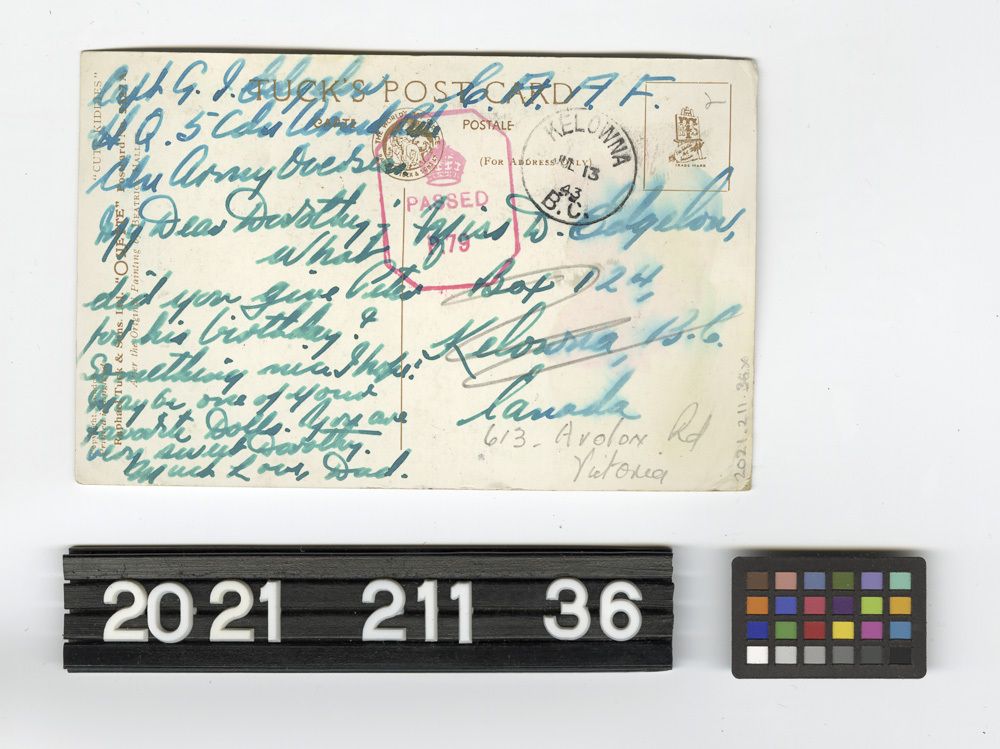 Capt G. I. Edgelow C. A. A. F.
H.Q. 5 Cdn Armd Div
Cdn Army Overseas
My Dear Dorothy:
What
did you give Peter
for his birthday?
Something nice I hope.
Maybe one of your
favorite Dolls. You are
very sweet Dorothy.
Much Love, Dad.
Miss D. Edgelow,
Box 124
Kelowna, B.C.
Canada
613 - Avalon Rd
Victoria
TUCK'S POST CARD
CARTE POSTALE
(FOR ADDRESS ONLY)
PASSED
KELOWNA
JUL 13
43
B.C.
TRADE MARK
"CUTE KIDDIES"
Raphael Tuck & Sons, Ltd. "OILETTE" Postcard
After the Original Painting by BEATRICE
2
2021.211.36
2021 211 36